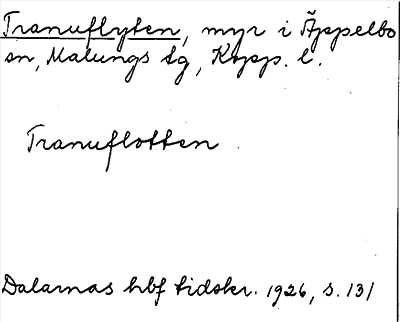 Tranuflyten, myr i Äppelbo
sn, Malungs tg, Kopp. l.
Tranuflotten.
Dalarnas hbf tidskr. 1926, s. 131